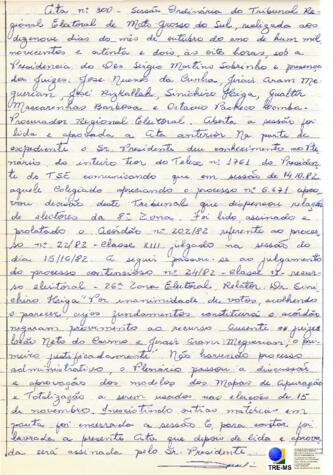 Ata nº 500 - Sessão Ordinária do Tribunal Re-
gional Eleitoral de Mato Grosso do Sul, realizada aos
dezenove dias do mês de outubro do ano de hum mil
novecentos e oitenta e dois, às oito horas, sob a
Presidência do Des Sérgio Martins Sobrinho e presença
dos Juízes: José Nunes da Cunha, Juvair Aram Me-
guerian, José Rizkallah, Sinichiro Haiga, Gualter
Mascarenhas Barbosa e Octávio Pacheco Lomba.
Procurador Regional Eleitoral. Aberta a sessão foi
lida e aprovada a Ata anterior. Na parte de
expediente o Sr. Presidente deu conhecimento ao Ple-
nário, do inteiro teor do Telex nº 1761 do Presiden-
te do TSE comunicando que em sessão de 14.10.82
aquele Colegiado apreciando o processo nº 6.671 apro-
vou decisão deste Tribunal que dispensou relação
de electores da 8ª Zona. Foi lido, assinado e
prolatado o Acórdão nº 202/82 referente ao proces-
so nº 22/82 - classe XIII, julgado na sessão do
dia 15/10/82. A seguir passou-se ao julgamento
do processo contencioso nº 24/82 - classe recur-
so eleitoral - 26ª Zona Eleitoral, Relator: Dr. Sini-
chiro Haiga "Por unanimidade de votos, acolhendo
o parecer cujos fundamentos constituirá o acórdão
negaram provimento ao recurso. Ausente os juízes
Leão Neto do Carmo e Juvair Aram Meguerian, o pri-
meiro justificadamente". Não havendo processo
administrativo, o Plenário passou a discussão
e aprovação dos modelos dos Mapas de Apuração
e Totalização a serem usados nas eleições de 15
de novembro. Inexistindo outras matérias em
pauta foi encerrada a sessão. E, para constar foi
lavrada a presente Ata que depois de lida e aprova-
da será assinada pelo Sr. Presidente.
TRE-MS